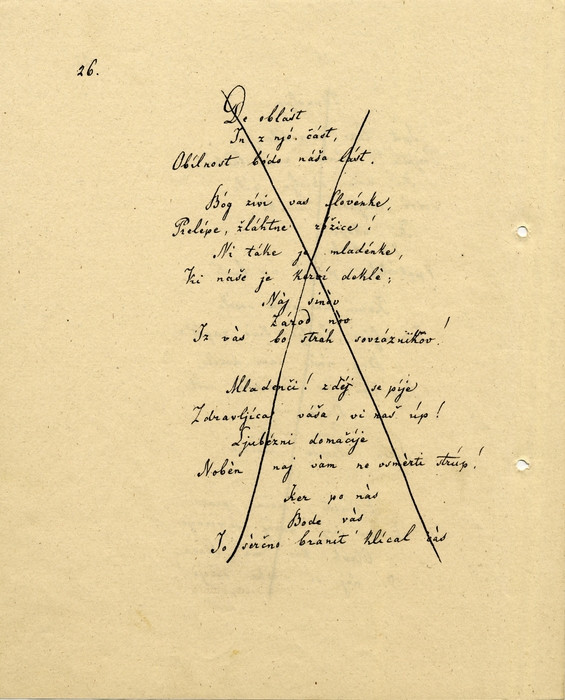 26.
De oblást
In z njó. část,
Obílnost bódo náša lást.
Bóg živi vas Slovénke,
Prelépe, žláhtne róžice!
Ni táke je mladénke,
Ki náše je kerví deklè;
Nàj sinòv
Zárod nòv
Iz vàs bo stráh sovrážnikov!
Mladenči! zdèj se pije
Zdravljíca váša, vi naš úp!
Ljubézni domačíje
Nobèn naj vàm ne vsmèrti strúp!
Ker po nàs
Bode vàs
Jo sèrčno bránit' klícal čàs